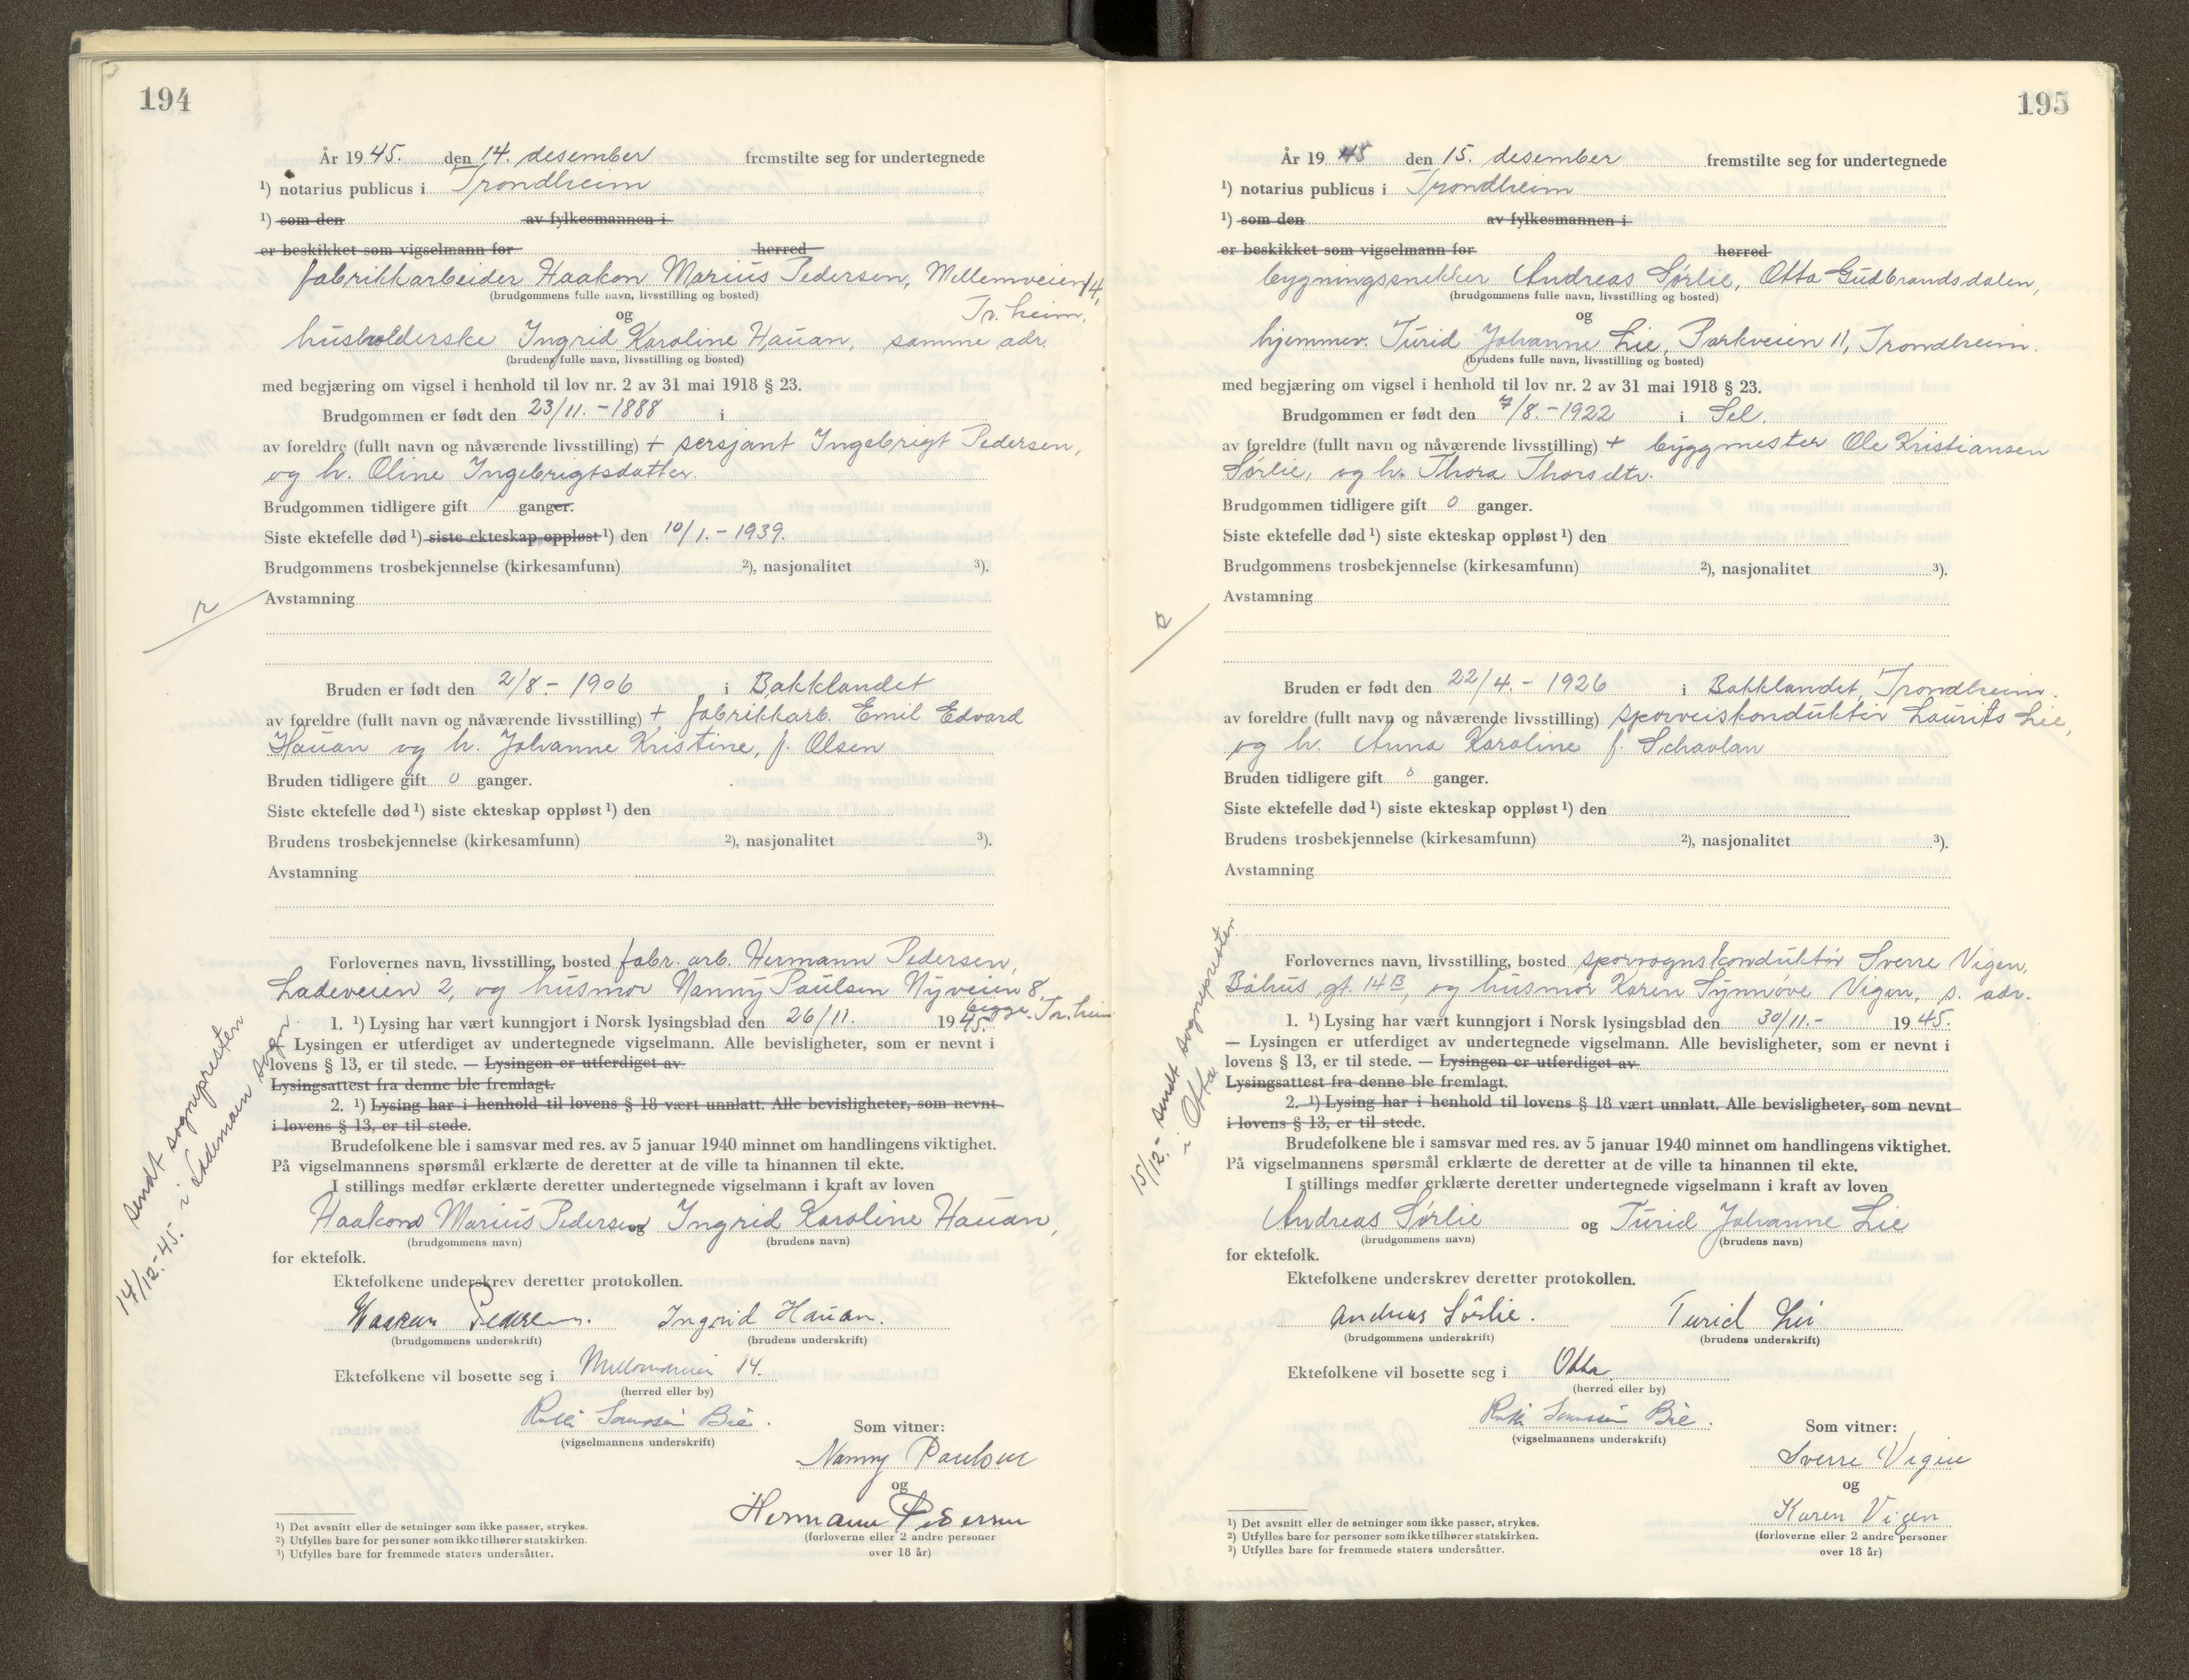 194
År 1945. den 14. desember fremstilte seg for undertegnede
¹) notarius publicus i Trondheim
¹) som den av fylkesmannen i
er beskikket som vigselmann for herred
fabrikkarbeider Haakon Marius Pedersen, Mellemveien 14,
(brudgommens fulle navn, livsstilling og bosted)
og Tr.heim.
husholderske Ingrid Karoline Hauan, samme adr.
(brudens fulle navn, livsstilling og bosted)
med begjæring om vigsel i henhold til lov nr. 2 av 31 mai 1918 § 23.
Brudgommen er født den 23/11.-1888 i
av foreldre (fullt navn og nåværende livsstilling) + sersjant Ingebrigt Pedersen,
og h. Oline Ingebrigtsdatter.
Brudgommen tidligere gift 1 ganger.
Siste ektefelle død ¹) siste ekteskap oppløst ¹) den 10/1.-1939.
Brudgommens trosbekjennelse (kirkesamfunn) ²), nasjonalitet ³).
Avstamning
Bruden er født den 2/8.-1906 i Bakklandet
av foreldre (fullt navn og nåværende livsstilling) + fabrikkarb. Emil Edvard
Hauan og h. Johanne Kristine, f. Olsen
Bruden tidligere gift 0 ganger.
Siste ektefelle død ¹) siste ekteskap oppløst ¹) den
Brudens trosbekjennelse (kirkesamfunn) ²), nasjonalitet ³).
Avstamning
Forlovernes navn, livsstilling, bosted fabr. arb. Hermann Pedersen,
Ladeveien 2, og husmor Nanny Paulsen Nyveien 8,
begge Tr.heim
1. ¹) Lysing har vært kunngjort i Norsk lysingsblad den 26/11. 1945.
— Lysingen er utferdiget av undertegnede vigselmann. Alle bevisligheter, som er nevnt i
lovens § 13, er til stede. — Lysingen er utferdiget av
Lysingsattest fra denne ble fremlagt.
2. ¹) Lysing har i henhold til lovens § 18 vært unnlatt. Alle bevisligheter, som nevnt
i lovens § 13, er til stede.
Brudefolkene ble i samsvar med res. av 5 januar 1940 minnet om handlingens viktighet.
På vigselmannens spørsmål erklærte de deretter at de ville ta hinannen til ekte.
I stillings medfør erklærte deretter undertegnede vigselmann i kraft av loven
Haakon Marius Pedersen og Ingrid Karoline Hauan,
(brudgommens navn) (brudens navn)
for ektefolk.
Ektefolkene underskrev deretter protokollen.
Haakon Pedersen. Ingrid Hauan.
(brudgommens underskrift) (brudens underskrift)
Ektefolkene vil bosette seg i Mellomveien 14.
(herred eller by)
Bie.
(vigselmannens underskrift)
Som vitner:
Nanny Paulsen
og
Hermann Pedersen
(forloverne eller 2 andre personer
over 18 år)
¹) Det avsnitt eller de setninger som ikke passer, strykes.
²) Utfylles bare for personer som ikke tilhører statskirken.
³) Utfylles bare for fremmede staters undersåtter.
14/12.-45. sendt sognepresten
i Lademoen sogn.
195
År 1945 den 15. desember fremstilte seg for undertegnede
¹) notarius publicus i Trondheim
¹) som den av fylkesmannen i
er beskikket som vigselmann for herred
bygningssnekker Andreas Sørlie, Otta Gudbrandsdalen,
(brudgommens fulle navn, livsstilling og bosted)
og
hjemmev. Turid Johanne Lie, Parkveien 11, Trondheim.
(brudens fulle navn, livsstilling og bosted)
med begjæring om vigsel i henhold til lov nr. 2 av 31 mai 1918 § 23.
Brudgommen er født den 7/8.-1922 i Sel.
av foreldre (fullt navn og nåværende livsstilling) + byggmester Ole Kristiansen
Sørlie, og h. Thora Thorsdtr.
Brudgommen tidligere gift 0 ganger.
Siste ektefelle død ¹) siste ekteskap oppløst ¹) den
Brudgommens trosbekjennelse (kirkesamfunn) ²), nasjonalitet ³).
Avstamning
Bruden er født den 22/4.-1926 i Bakklandet, Trondheim.
av foreldre (fullt navn og nåværende livsstilling) sporveiskonduktør Laurits Lie,
og h. Anna Karoline f. Schavlan
Bruden tidligere gift 0 ganger.
Siste ektefelle død ¹) siste ekteskap oppløst ¹) den
Brudens trosbekjennelse (kirkesamfunn) ²), nasjonalitet ³).
Avstamning
Forlovernes navn, livsstilling, bosted sporvognskonduktør Sverre Vigen,
Båhus gt. 14B, og husmor Karen Synnøve Vigen, s. adr.
1. ¹) Lysing har vært kunngjort i Norsk lysingsblad den 30/11.- 1945.
— Lysingen er utferdiget av undertegnede vigselmann. Alle bevisligheter, som er nevnt i
lovens § 13, er til stede. — Lysingen er utferdiget av
Lysingsattest fra denne ble fremlagt.
2. ¹) Lysing har i henhold til lovens § 18 vært unnlatt. Alle bevisligheter, som nevnt
i lovens § 13, er til stede.
Brudefolkene ble i samsvar med res. av 5 januar 1940 minnet om handlingens viktighet.
På vigselmannens spørsmål erklærte de deretter at de ville ta hinannen til ekte.
I stillings medfør erklærte deretter undertegnede vigselmann i kraft av loven
Andreas Sørlie og Turid Johanne Lie
(brudgommens navn) (brudens navn)
for ektefolk.
Ektefolkene underskrev deretter protokollen.
Andreas Sørlie. Turid Lie
(brudgommens underskrift) (brudens underskrift)
Ektefolkene vil bosette seg i Otta
(herred eller by)
Bie.
(vigselmannens underskrift)
Som vitner:
Sverre Vigen
og
Karen Vigen
(forloverne eller 2 andre personer
over 18 år)
¹) Det avsnitt eller de setninger som ikke passer, strykes.
²) Utfylles bare for personer som ikke tilhører statskirken.
³) Utfylles bare for fremmede staters undersåtter.
15/12.- sendt sognepresten
i Otta